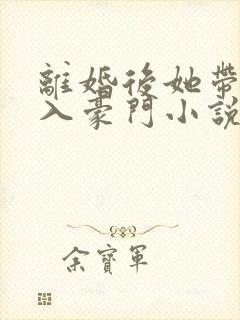 離婚後她帶
入豪門小說
余寶軍